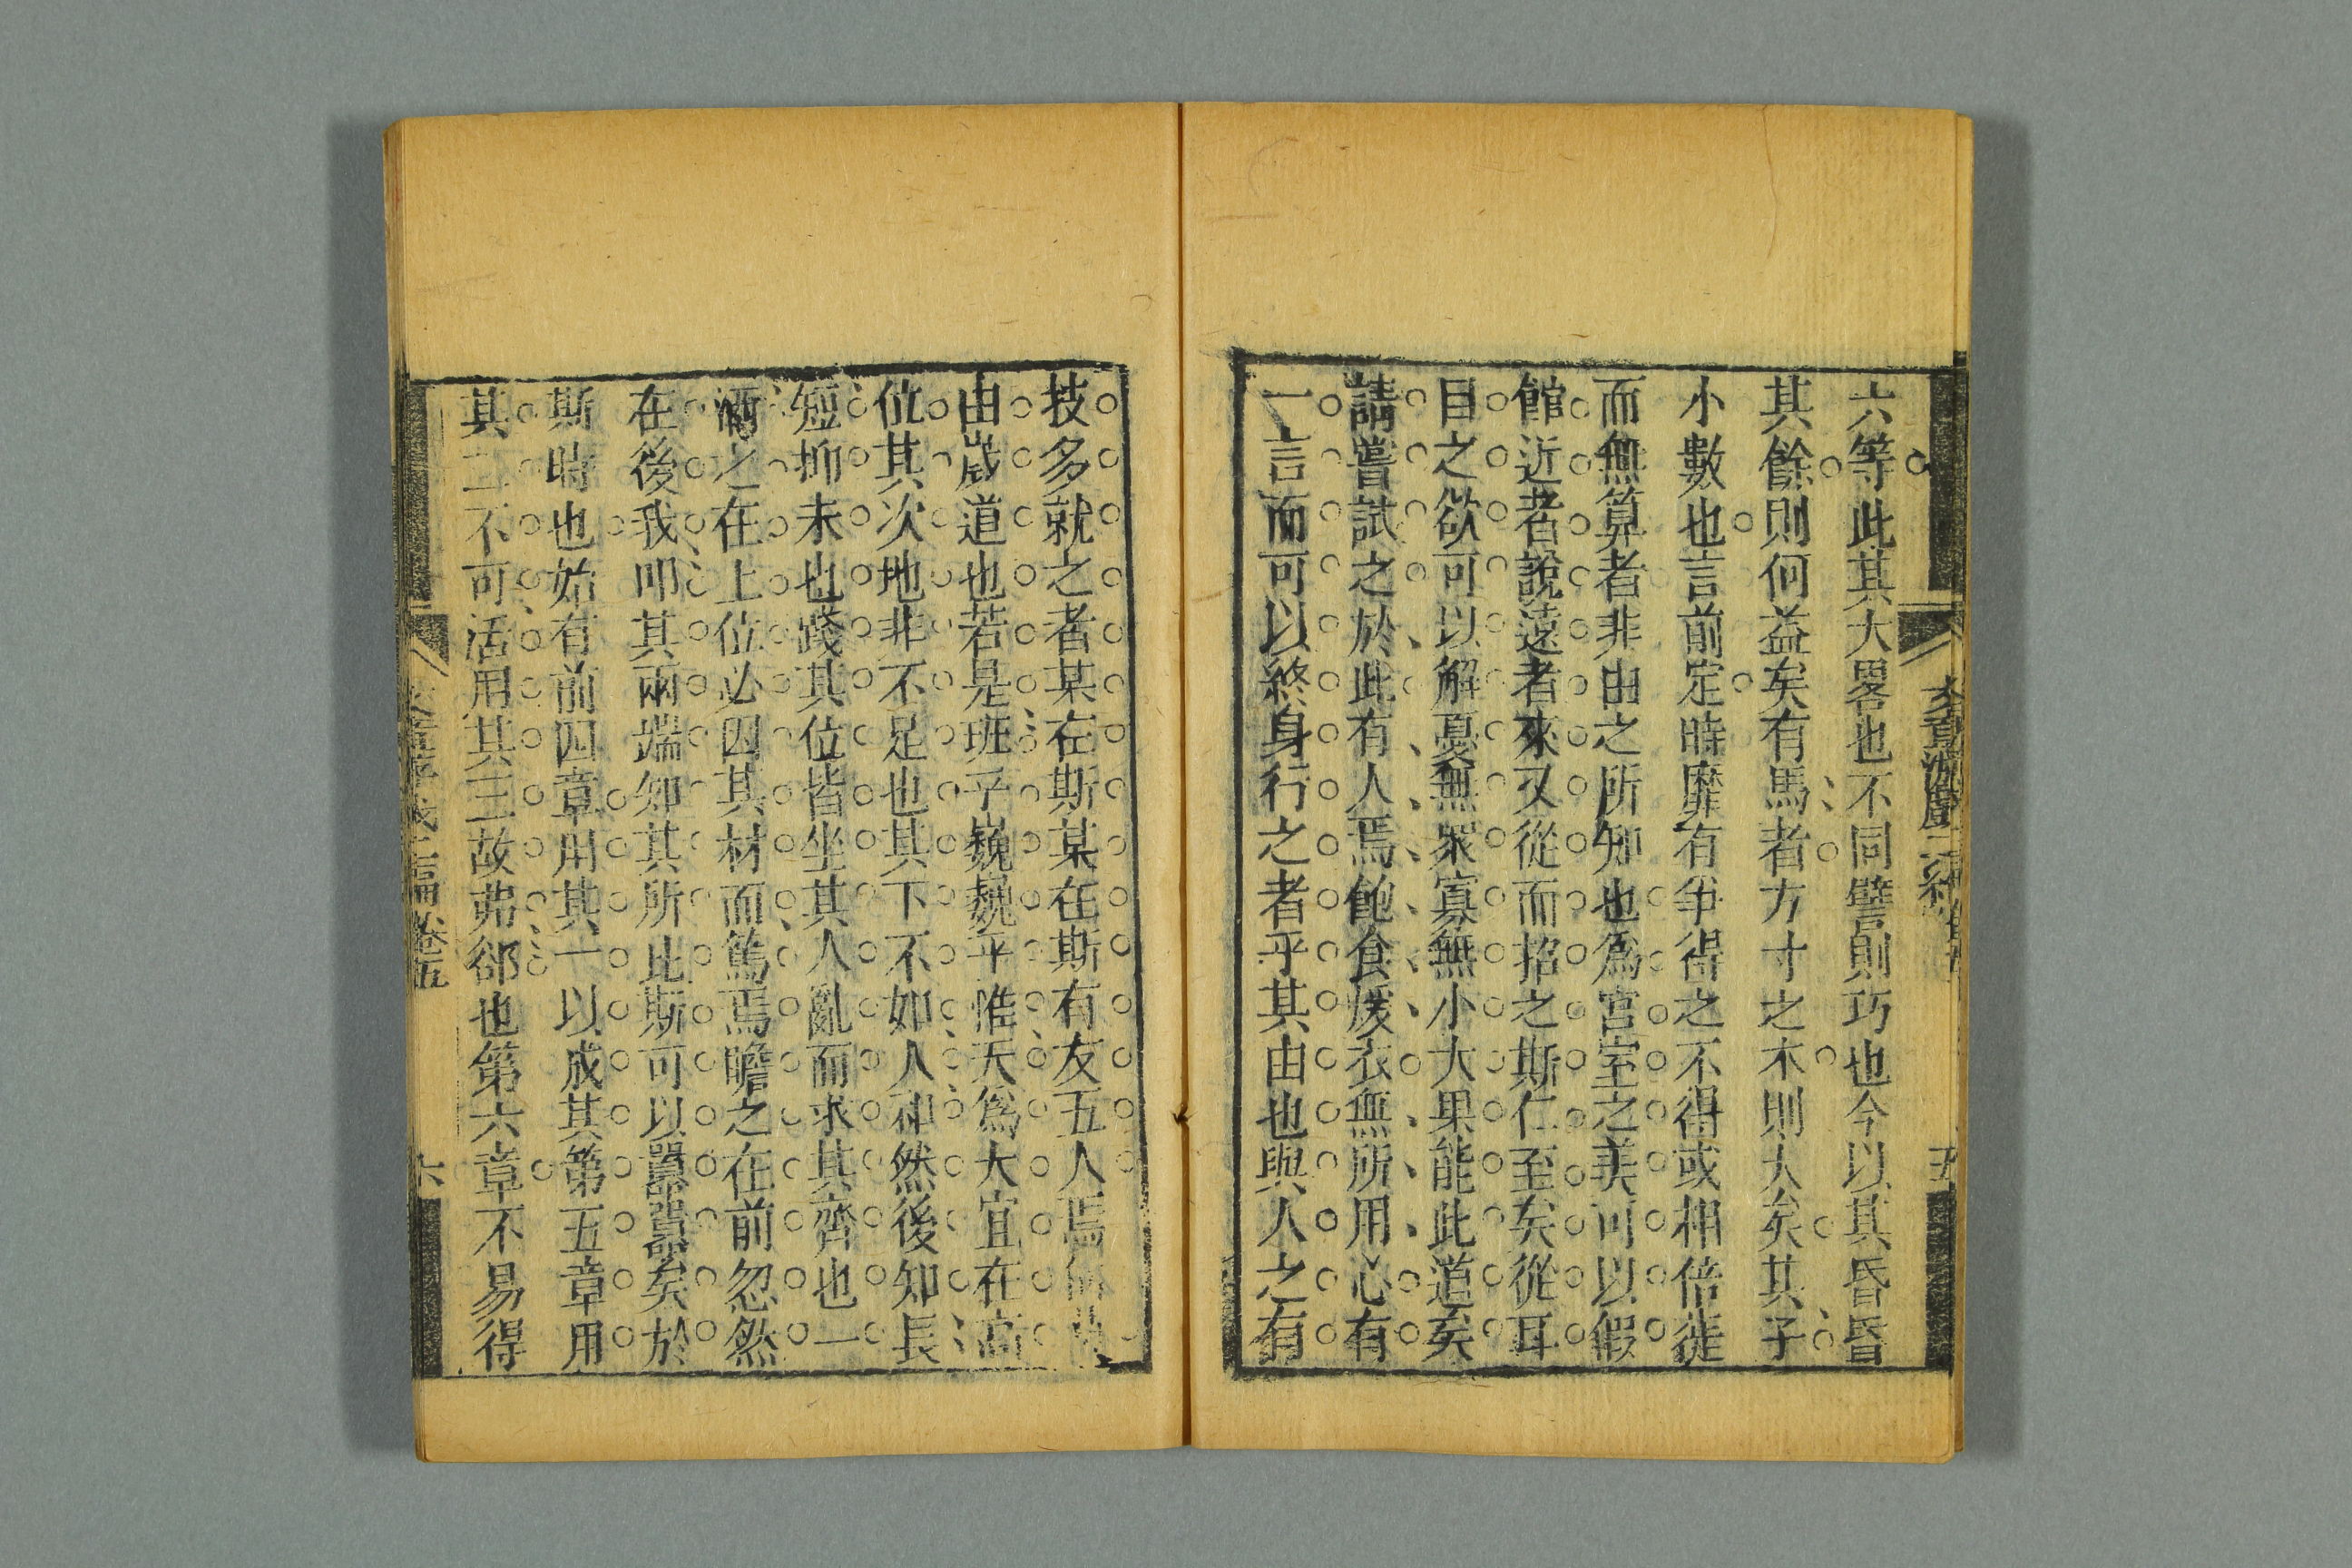 六等此其大畧也不同譬則巧也今以其昏昏
其餘則何益矣有馬者方寸之木則大矣其子
小數也言前定時靡有爭得之不得或相倍徙
而無算者非由之所知也爲宮室之美可以假
館近者說遠者來又從而招之斯仁至矣從耳
目之欲可以解憂無衆寡無小大果能此道矣
請嘗試之於此有人焉飽食煖衣無所用心有
一言而可以終身行之者乎其由也與人之有
技多就之者某在斯某在斯有友五人焉
由歲道也若是班乎巍巍乎惟天爲大宜在高
位其次地非不足也其下不如人和然後知長
短抑未也踐其位皆坐其人亂而求其齊也一
之在上位必因其材而篤焉瞻之在前忽然
在後我叩其兩端卹其所此斯可以囂囂矣於
斯時也始有前四章用其一以成其第五章用
其二不可活用其三故弗郤也第六章不易得
卷五
六